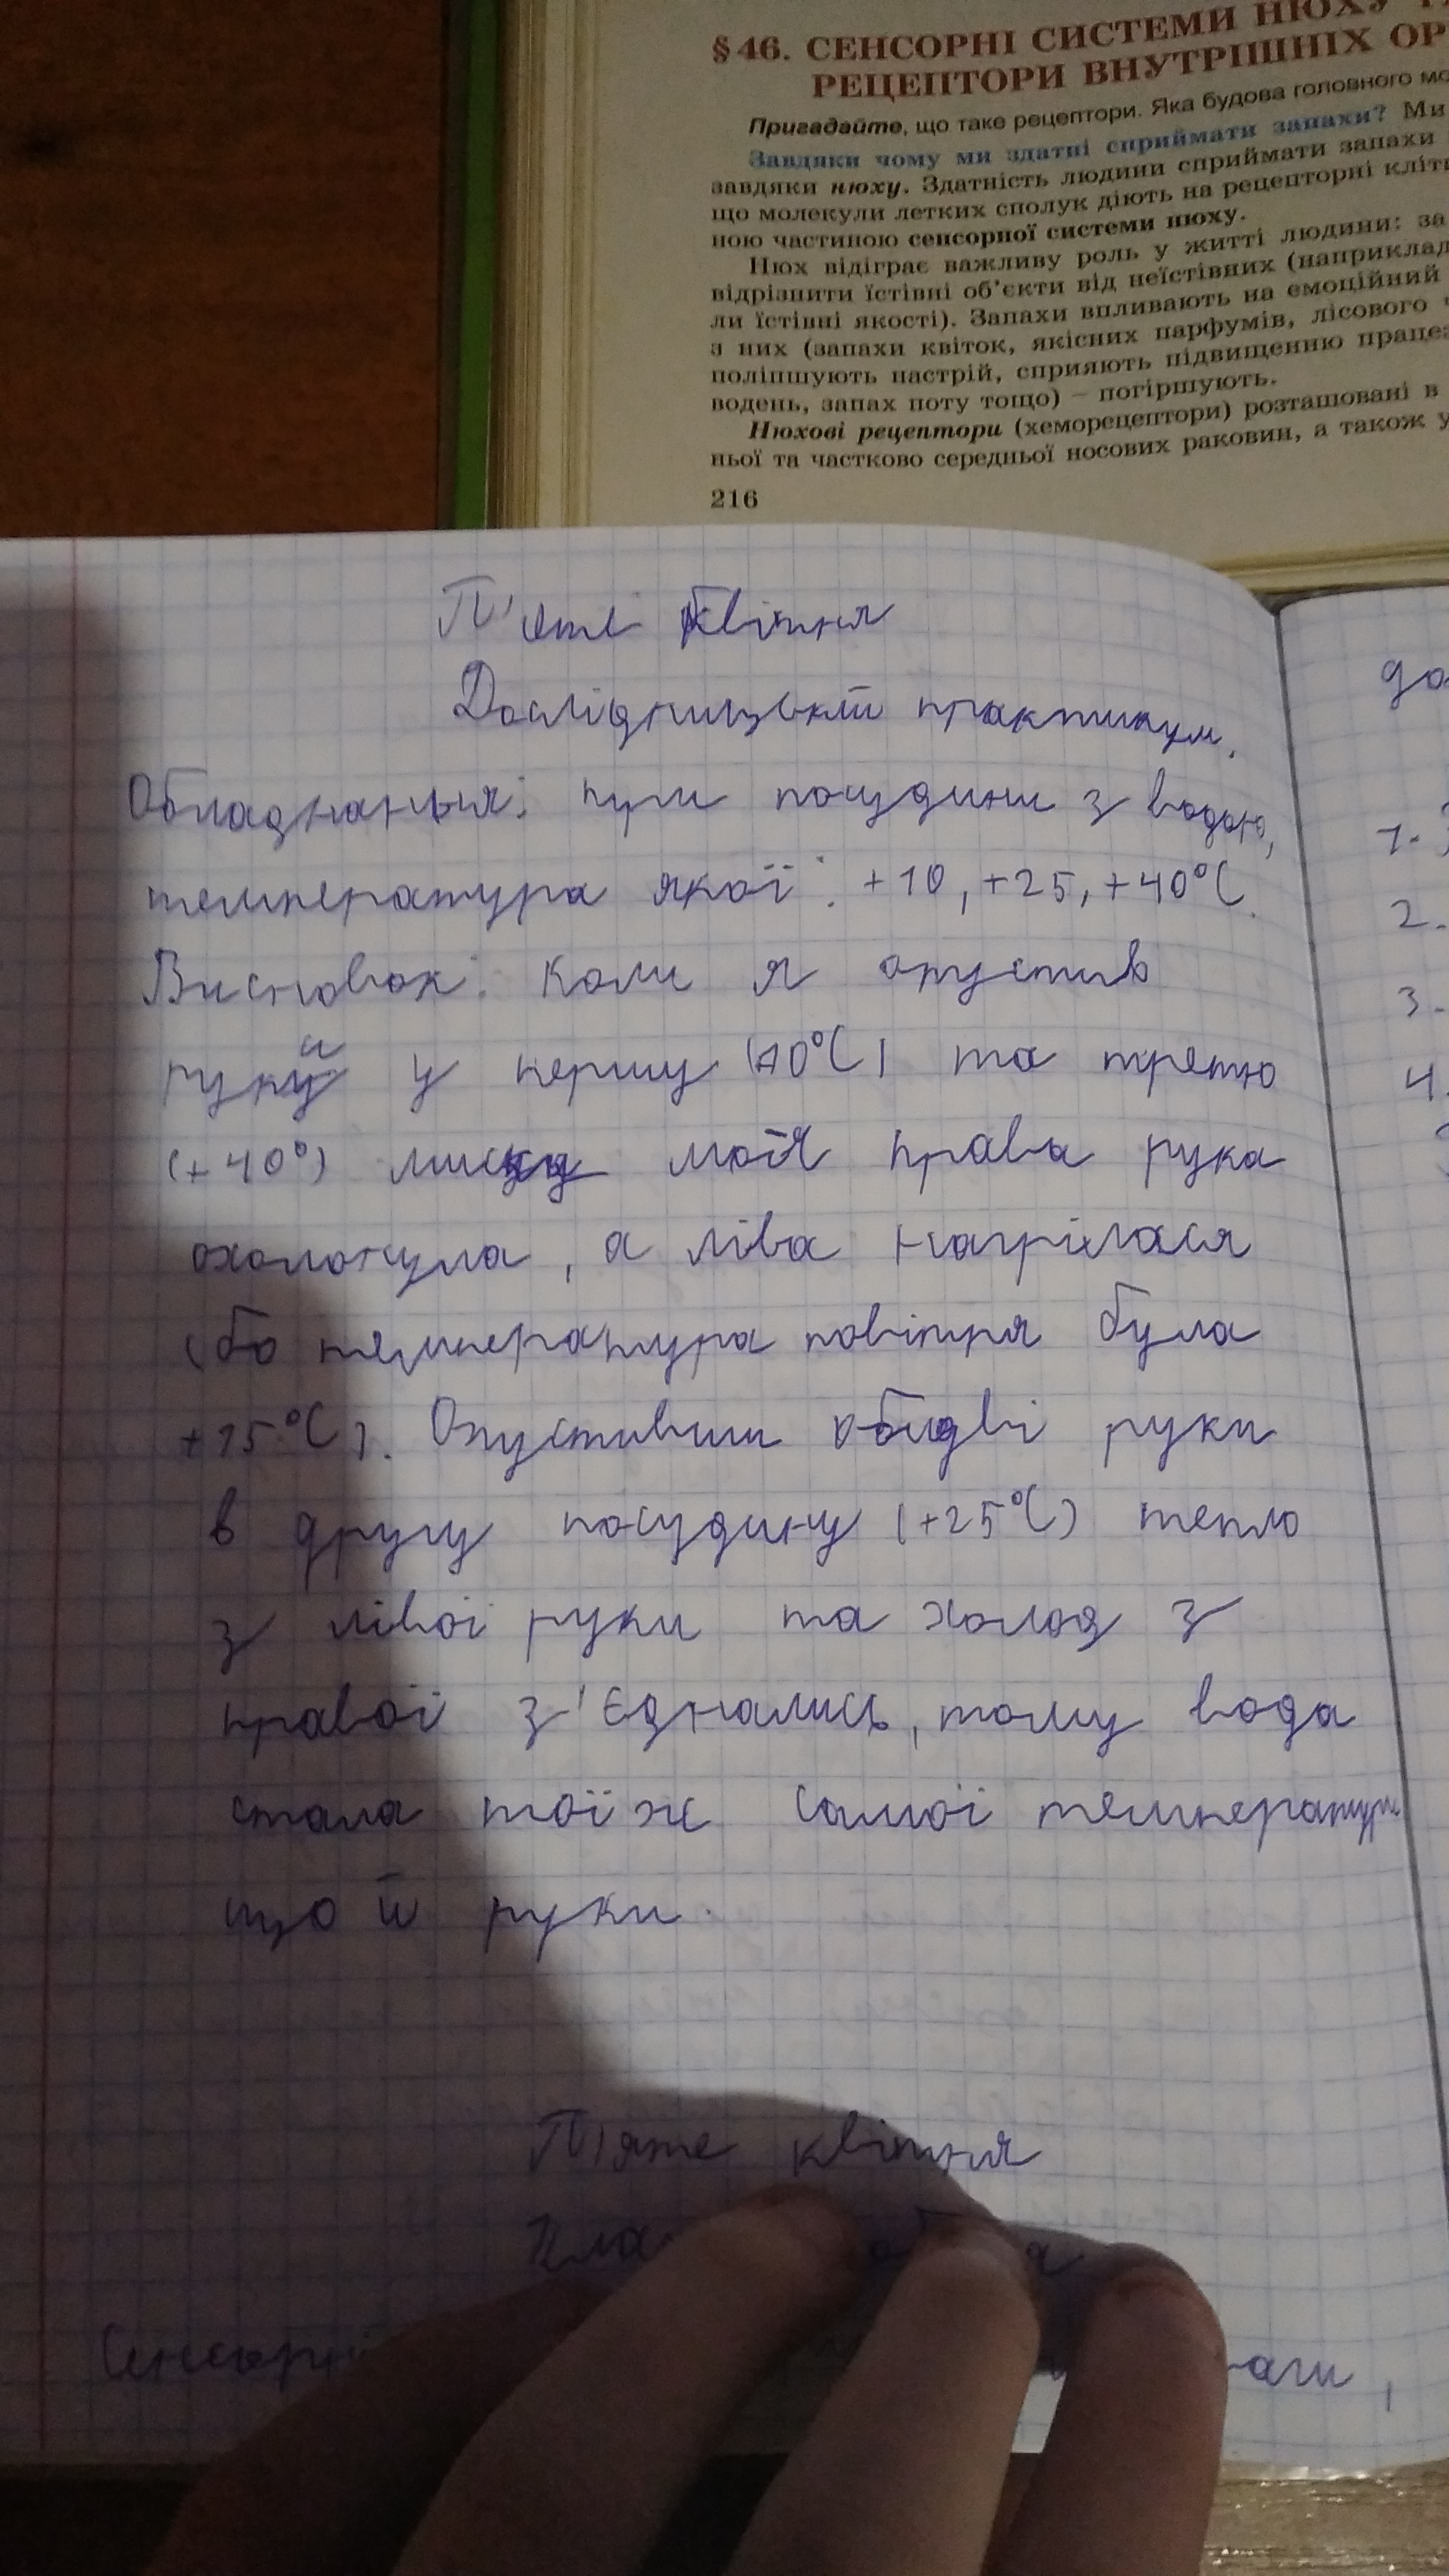 § 46. СЕНСОРНІ СИСТЕМИ НЮХУ
РЕЦЕПТОРИ ВНУТРІШНІХ ОР
Пригадайте, що таке рецептори. Яка будова головного мо
Завдяки чому ми здатні сприймати запахи? Ми
завдяки нюху. Здатність людини сприймати запахи
що молекули летких сполук діють на рецепторні кліти
ною частиною сенсорної системи нюху.
Нюх відіграє важливу роль у житті людини: за
відрізнити їстівні об'єкти від неїстівних (наприклад
ли їстівні якості). Запахи впливають на емоційний
з них (запахи квіток, якісних парфумів, лісового
поліпшують настрій, сприяють підвищенню праце
водень, запах поту тощо) – погіршують.
Нюхові рецептори (хеморецептори) розташовані в
ньої та частково середньої носових раковин, а також у
216
П'яте квітня
Дослідницький практикум.
Обладнання: три посудини з водою,
температура якої: +10, +25, +40°С.
Висновок: коли я опустив
руки у першу (10°С) та третю
(+40°) миску моя права рука
охолонула, а ліва нагрілася
(бо температура повітря була
+15°С). Опустивши обидві руки
в другу посудину (+25°С) тепло
з лівої руки та холод з
правої з'єднались, тому вода
стала тоїж самої температури
що й руки.
П'яте квітня
до
1.
2.
3.
4.